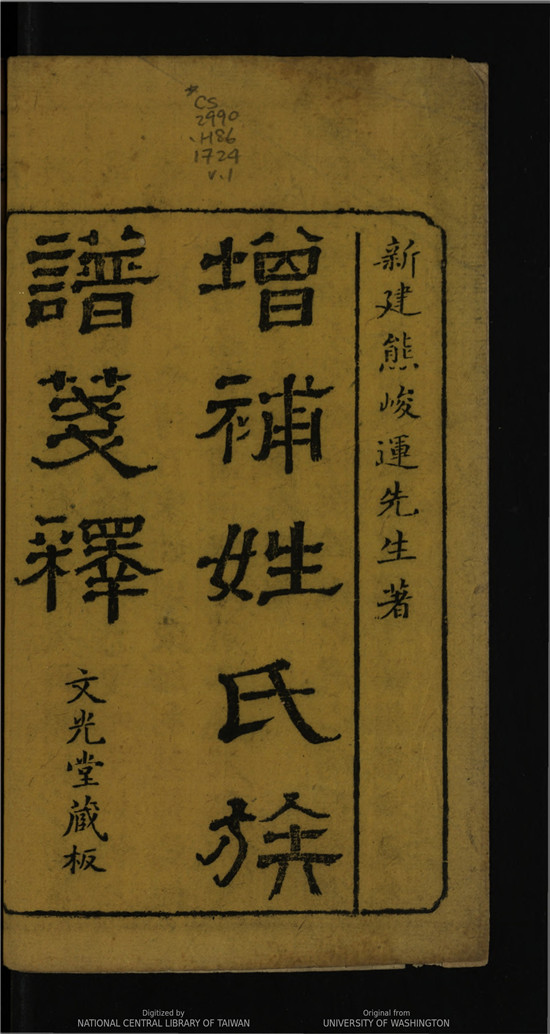 *
CS
2990
.H86
1724
v.1
新建熊峻運先生著
增補姓氏族
譜箋釋
文光堂藏板
Digitized by
NATIONAL CENTRAL LIBRARY OF TAIWAN
Original from
UNIVERSITY OF WASHINGTON